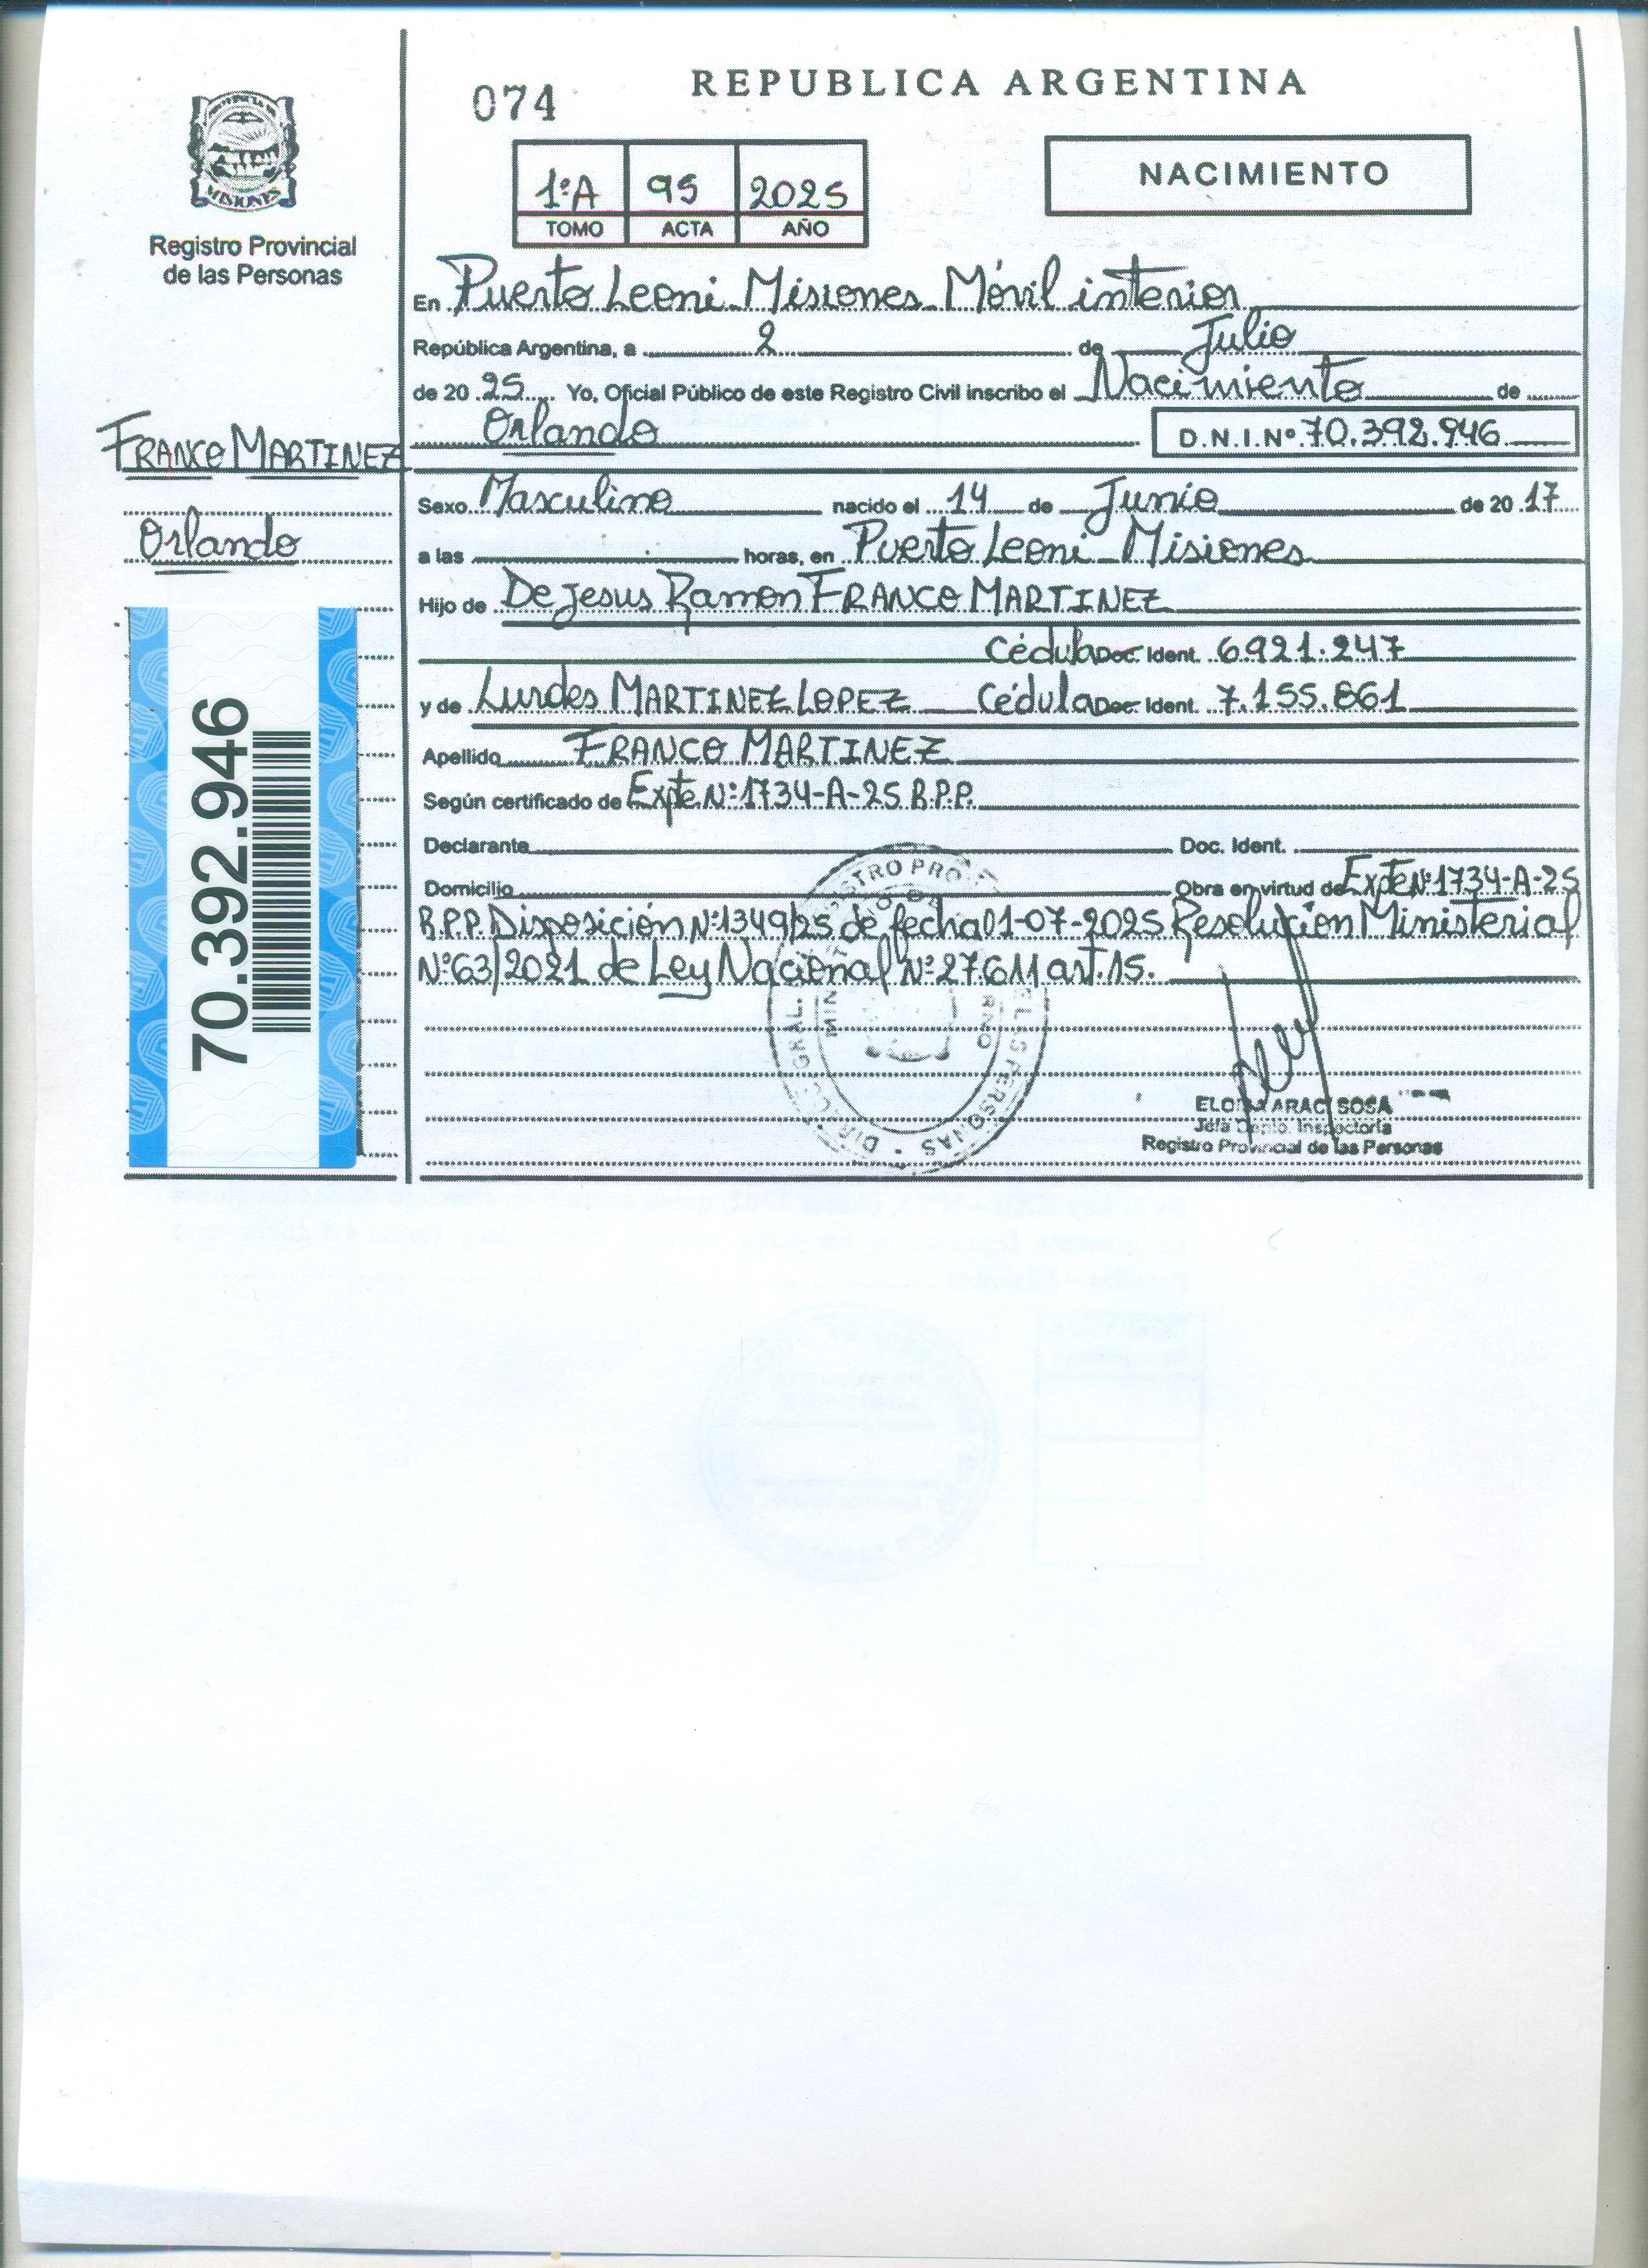 074
REPUBLICA ARGENTINA
1ºA 95 2025
TOMO ACTA AÑO
NACIMIENTO
PROVINCIA DE
MISIONES
Registro Provincial
de las Personas
En Puerto Leoni Misiones Móvil interior
República Argentina, a 2 de Julio
de 20 25 Yo, Oficial Público de este Registro Civil inscribo el Nacimiento de
Orlando D.N.I.Nº 70.392.946
FRANCO MARTINEZ
Orlando
70.392.946
Sexo Masculino nacido el 14 de Junio de 20 17
a las horas, en Puerto Leoni Misiones
Hijo de De Jesus Ramon FRANCO MARTINEZ
Cédula Doc. Ident. 6.921.247
y de Lurdes MARTINEZ LOPEZ Cédula Doc. Ident. 7.155.861
Apellido FRANCO MARTINEZ
Según certificado de Expte Nº 1734-A-25 R.P.P.
Declarante Doc. Ident.
Domicilio Obra en virtud de Expte Nº 1734-A-25
R.P.P. Disposición Nº 1349/25 de fecha 01-07-2025 Resolución Ministerial
Nº 63/2021 de Ley Nacional Nº 27.611 art. 15.
SOSA
Jefa Dpto. Inspectoría
Registro Provincial de las Personas